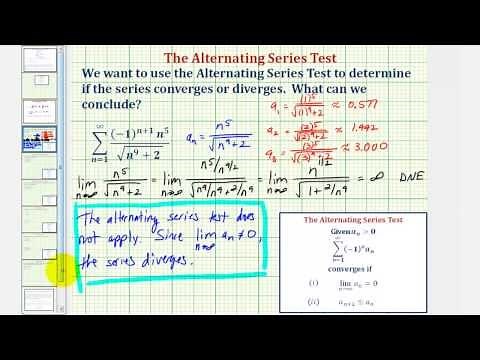 The Alternating Series Test
We want to use the Alternating Series Test to determine
if the series converges or diverges. What can we
conclude?
∞ ∑ n=1 (-1)^{n+1} n^5 / √(n^8 + 2)
a_n = n^5 / √(n^8+2)
a_1 = (1)^5 / √((1)^8+2) ≈ 0.577
a_2 = (2)^5 / √((2)^8+2) ≈ 1.992
a_3 = (3)^5 / √((3)^8+2) ≈ 3.000
lim n→∞ n^5 / √(n^8+2) = lim n→∞ n^5/n^{8/2} / √(n^8/n^8 + 2/n^8) = lim n→∞ n / √(1 + 2/n^8) = ∞ DNE
The alternating series test does
not apply. Since lim n→∞ a_n ≠ 0,
the series diverges.
The Alternating Series Test
Given a_n > 0
∞ ∑ n=1 (-1)^n a_n
converges if
(i) lim n→∞ a_n = 0
(ii) a_{n+1} ≤ a_n